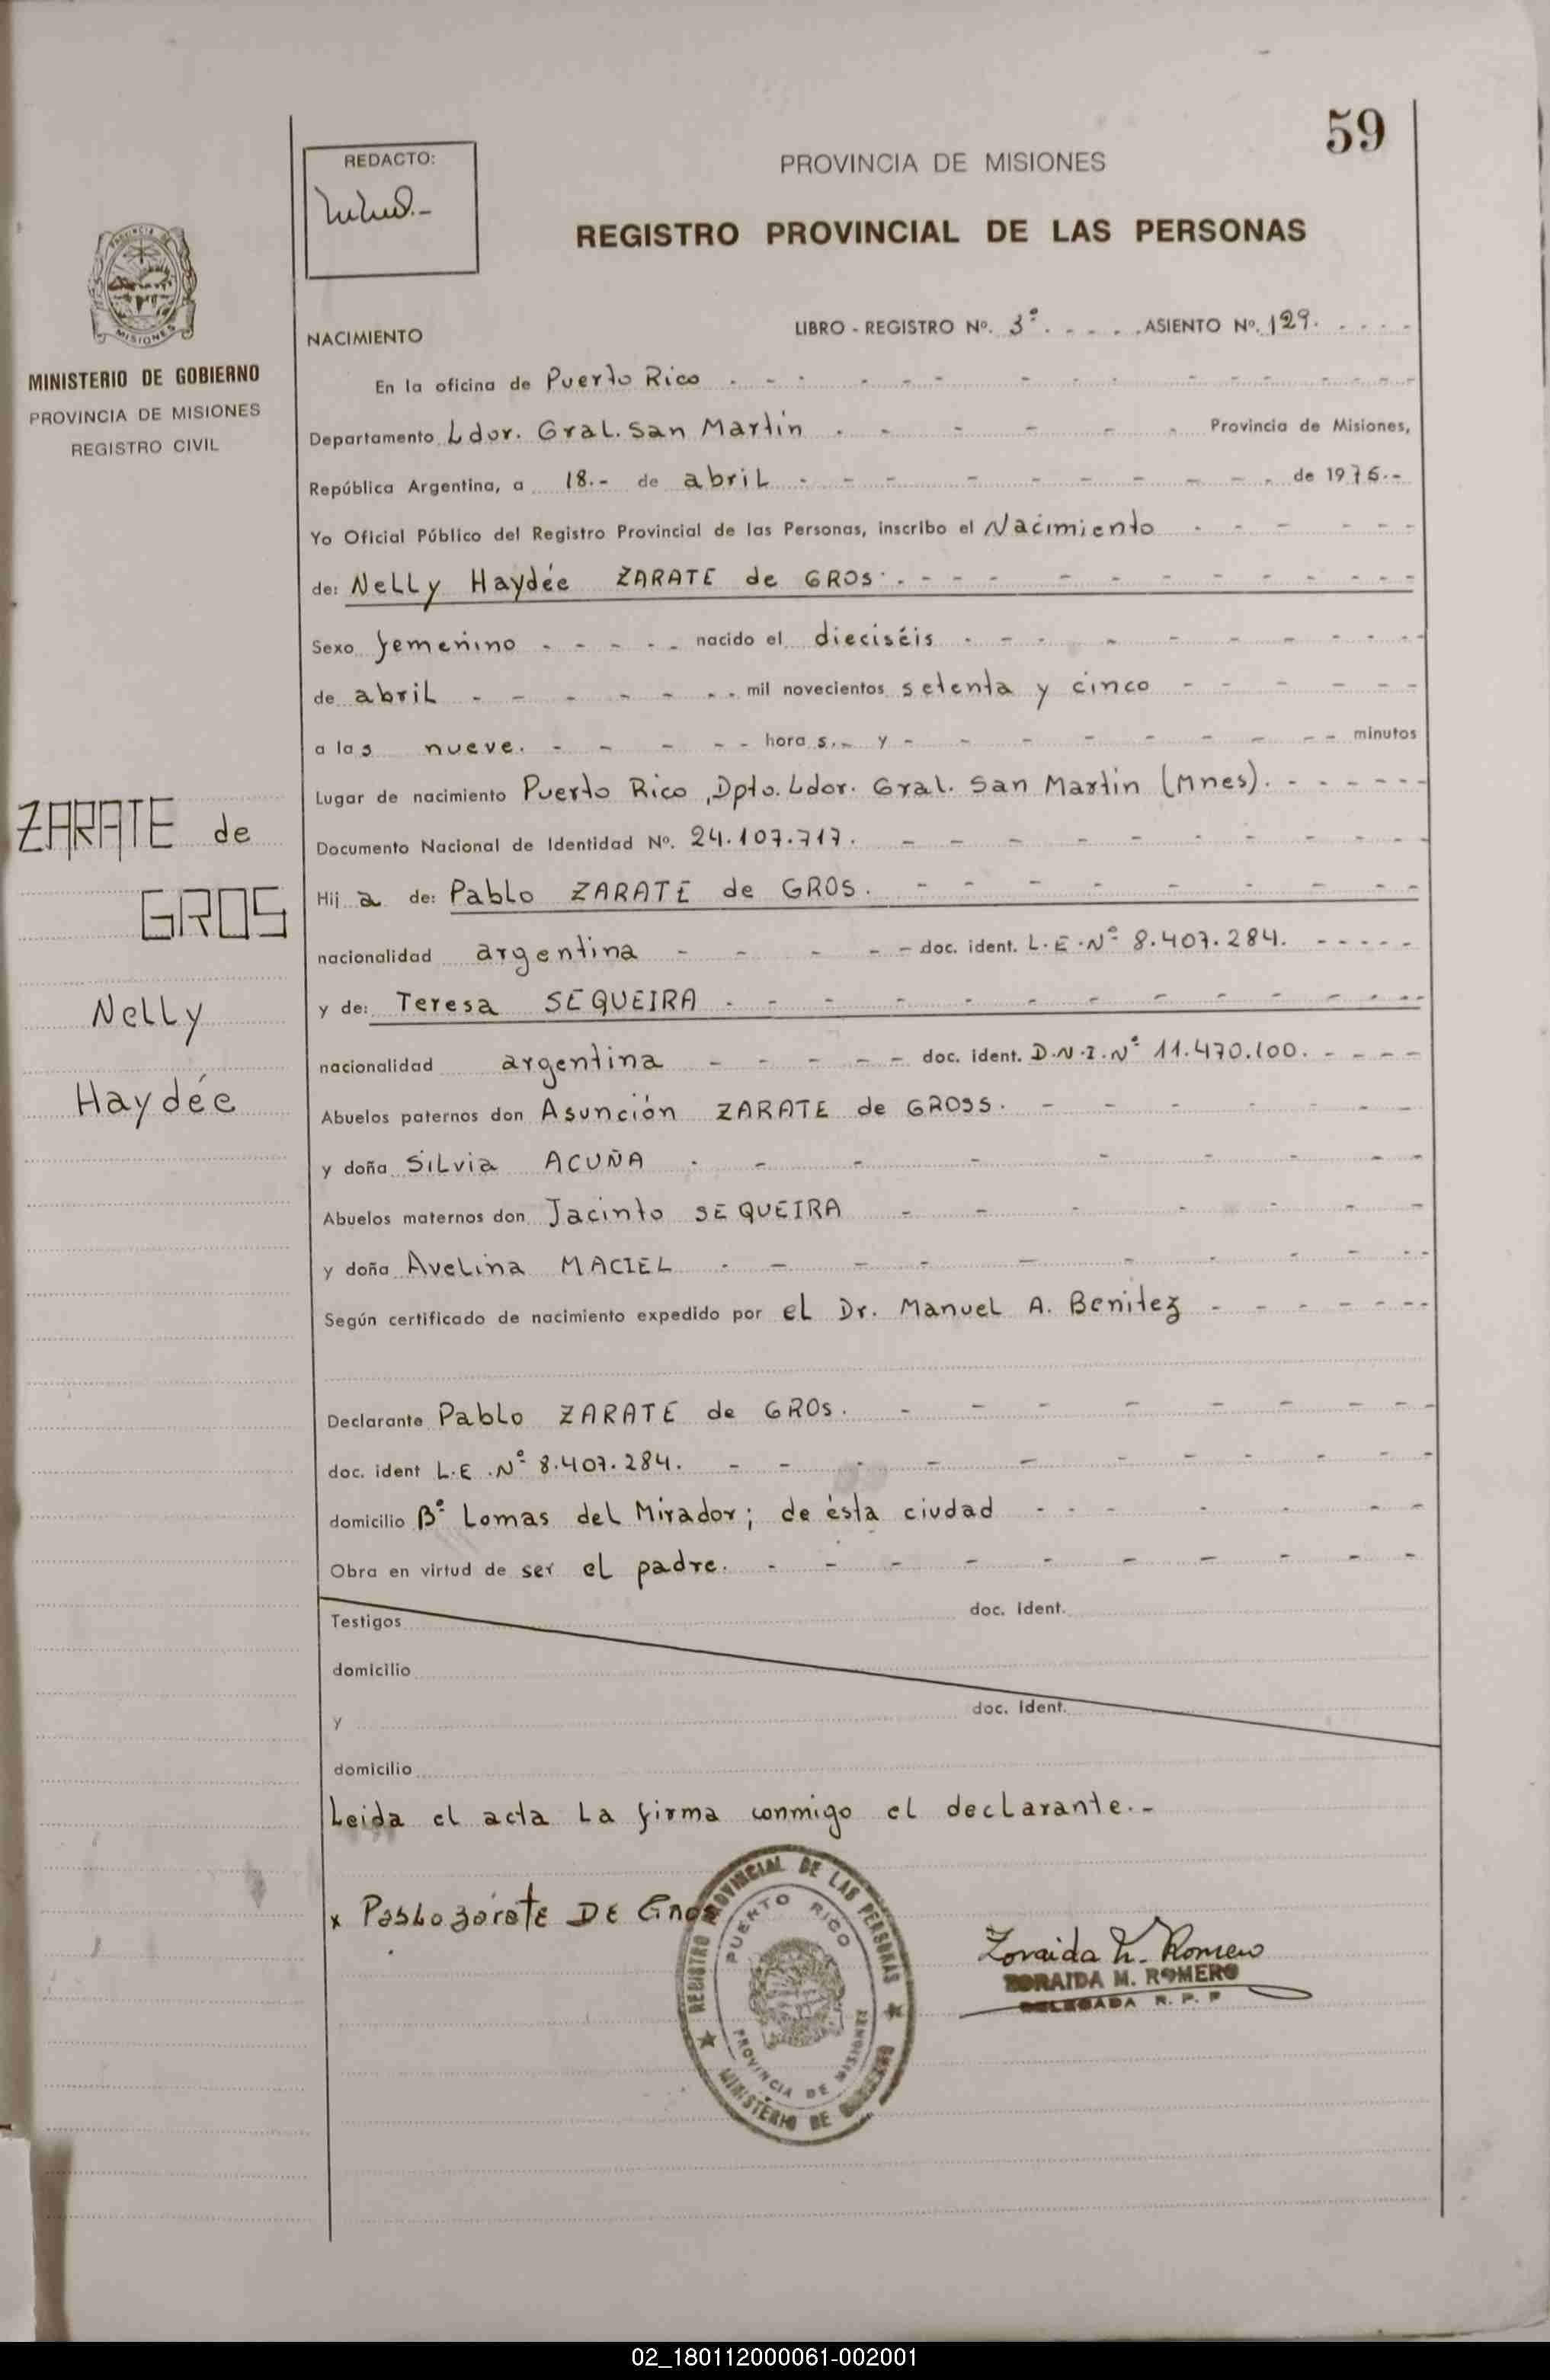 59
REDACTO:
PROVINCIA DE MISIONES
REGISTRO PROVINCIAL DE LAS PERSONAS
MISIONES
MINISTERIO DE GOBIERNO
PROVINCIA DE MISIONES
REGISTRO CIVIL
ZARATE de
GROS
Nelly
Haydée
NACIMIENTO LIBRO - REGISTRO Nº. 3º. ASIENTO Nº. 129.
En la oficina de Puerto Rico
Departamento Ldor. Gral. San Martin Provincia de Misiones,
República Argentina, a 18.- de abril de 1976.-
Yo Oficial Público del Registro Provincial de las Personas, inscribo el Nacimiento
de: Nelly Haydée ZARATE de GROS.
Sexo femenino nacido el dieciséis
de abril mil novecientos setenta y cinco
a las nueve. horas.- y - minutos
Lugar de nacimiento Puerto Rico, Dpto. Ldor. Gral. San Martin (Mnes).
Documento Nacional de Identidad Nº. 24.107.717.
Hija de: Pablo ZARATE de GROS.
nacionalidad argentina doc. ident. L.E.Nº 8.407.284.
y de: Teresa SEQUEIRA
nacionalidad argentina doc. ident. D.N.I.Nº 11.470.100.
Abuelos paternos don Asunción ZARATE de GROSS.
y doña Silvia ACUÑA
Abuelos maternos don Jacinto SEQUEIRA
y doña Avelina MACIEL
Según certificado de nacimiento expedido por el Dr. Manuel A. Benitez
Declarante Pablo ZARATE de GROS.
doc. ident L.E.Nº 8.407.284.
domicilio Bº Lomas del Mirador; de ésta ciudad
Obra en virtud de ser el padre.
Testigos doc. Ident.
domicilio
y doc. Ident.
domicilio
Leida el acta la firma conmigo el declarante.-
x Pablo zárate DE Gros
REGISTRO PROVINCIAL DE LAS PERSONAS
PUERTO RICO
PROVINCIA DE MISIONES
MINISTERIO DE GOBIERNO
Zoraida M. Romero
ZORAIDA M. ROMERO
DELEGADA R. P. P
02_180112000061-002001